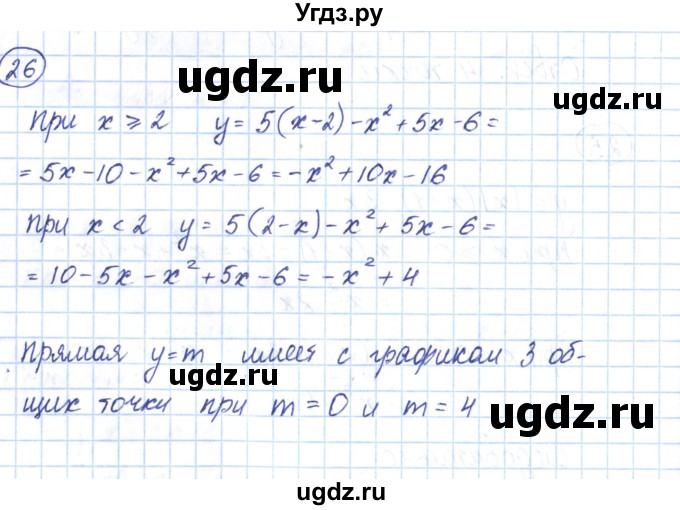 Угдз.ру
26
ugdz.ru
при x ⩾ 2 y = 5(x-2) - x² + 5x - 6 =
= 5x - 10 - x² + 5x - 6 = -x² + 10x - 16
при x < 2 y = 5(2-x) - x² + 5x - 6 =
ugdz.ru
= 10 - 5x - x² + 5x - 6 = -x² + 4
Прямая y = m имеет с графиком 3 об-
ugdz.ru
щих точки при m = 0 и m = 4
ugdz.ru
ugdz.ru